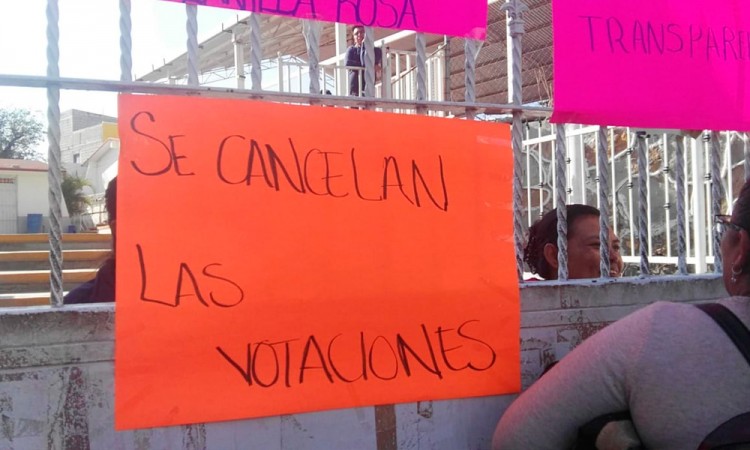 ROSA
TRANSPAREN
SE CANCELAN
LAS
VOTACIONES